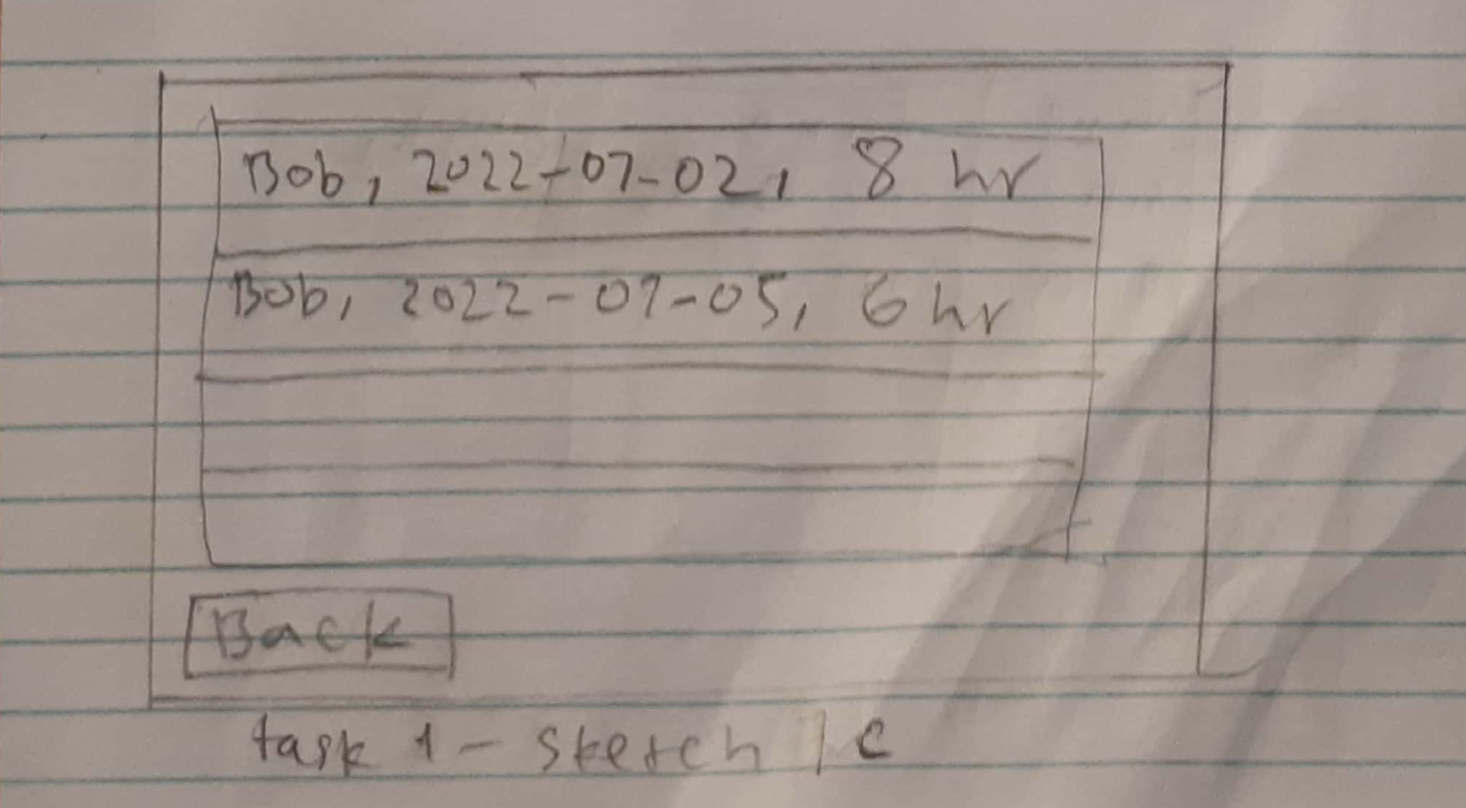 Bob, 2022-07-02, 8 hr
Bob, 2022-07-05, 6 hr
Back
task 1 - sketch 1 c